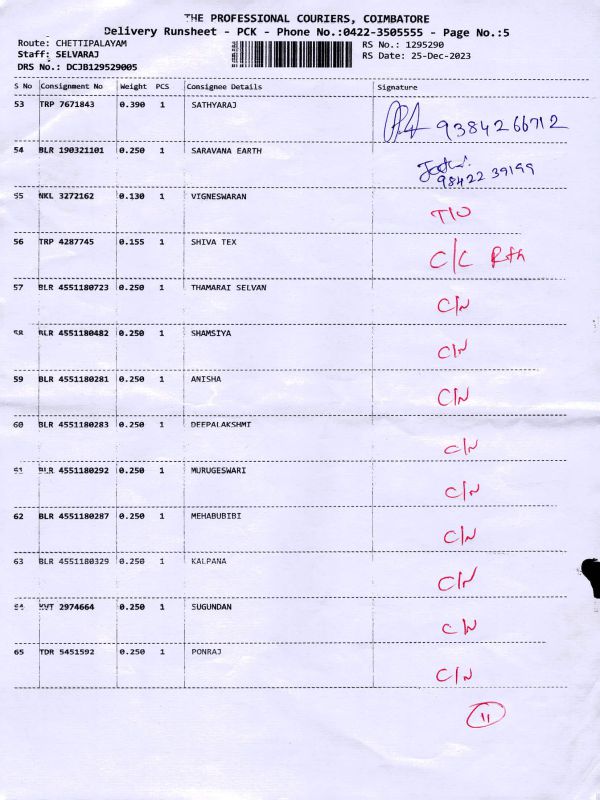 THE PROFESSIONAL COURIERS, COIMBATORE
Delivery Runsheet - PCK - Phone No.:0422-3505555 - Page No.:5
Route: CHETTIPALAYAM RS No.: 1295290
Staff: SELVARAJ RS Date: 25-Dec-2023
DRS No.: DCJB129529005
S No Consignment No Weight PCS Consignee Details Signature
53 TRP 7671843 0.390 1 SATHYARAJ 9384266712
54 BLR 190321101 0.250 1 SARAVANA EARTH
98422 39199
55 NKL 3272162 0.130 1 VIGNESWARAN T/O
56 TRP 4287745 0.155 1 SHIVA TEX C/C
57 BLR 4551180723 0.250 1 THAMARAI SELVAN C/N
58 BLR 4551180482 0.250 1 SHAMSIYA C/N
59 BLR 4551180281 0.250 1 ANISHA C/N
60 BLR 4551180283 0.250 1 DEEPALAKSHMI C/N
61 BLR 4551180292 0.250 1 MURUGESWARI C/N
62 BLR 4551180287 0.250 1 MEHABUBIBI C/N
63 BLR 4551180329 0.250 1 KALPANA C/N
64 KVT 2974664 0.250 1 SUGUNDAN C/N
65 TDR 5451592 0.250 1 PONRAJ C/N
11